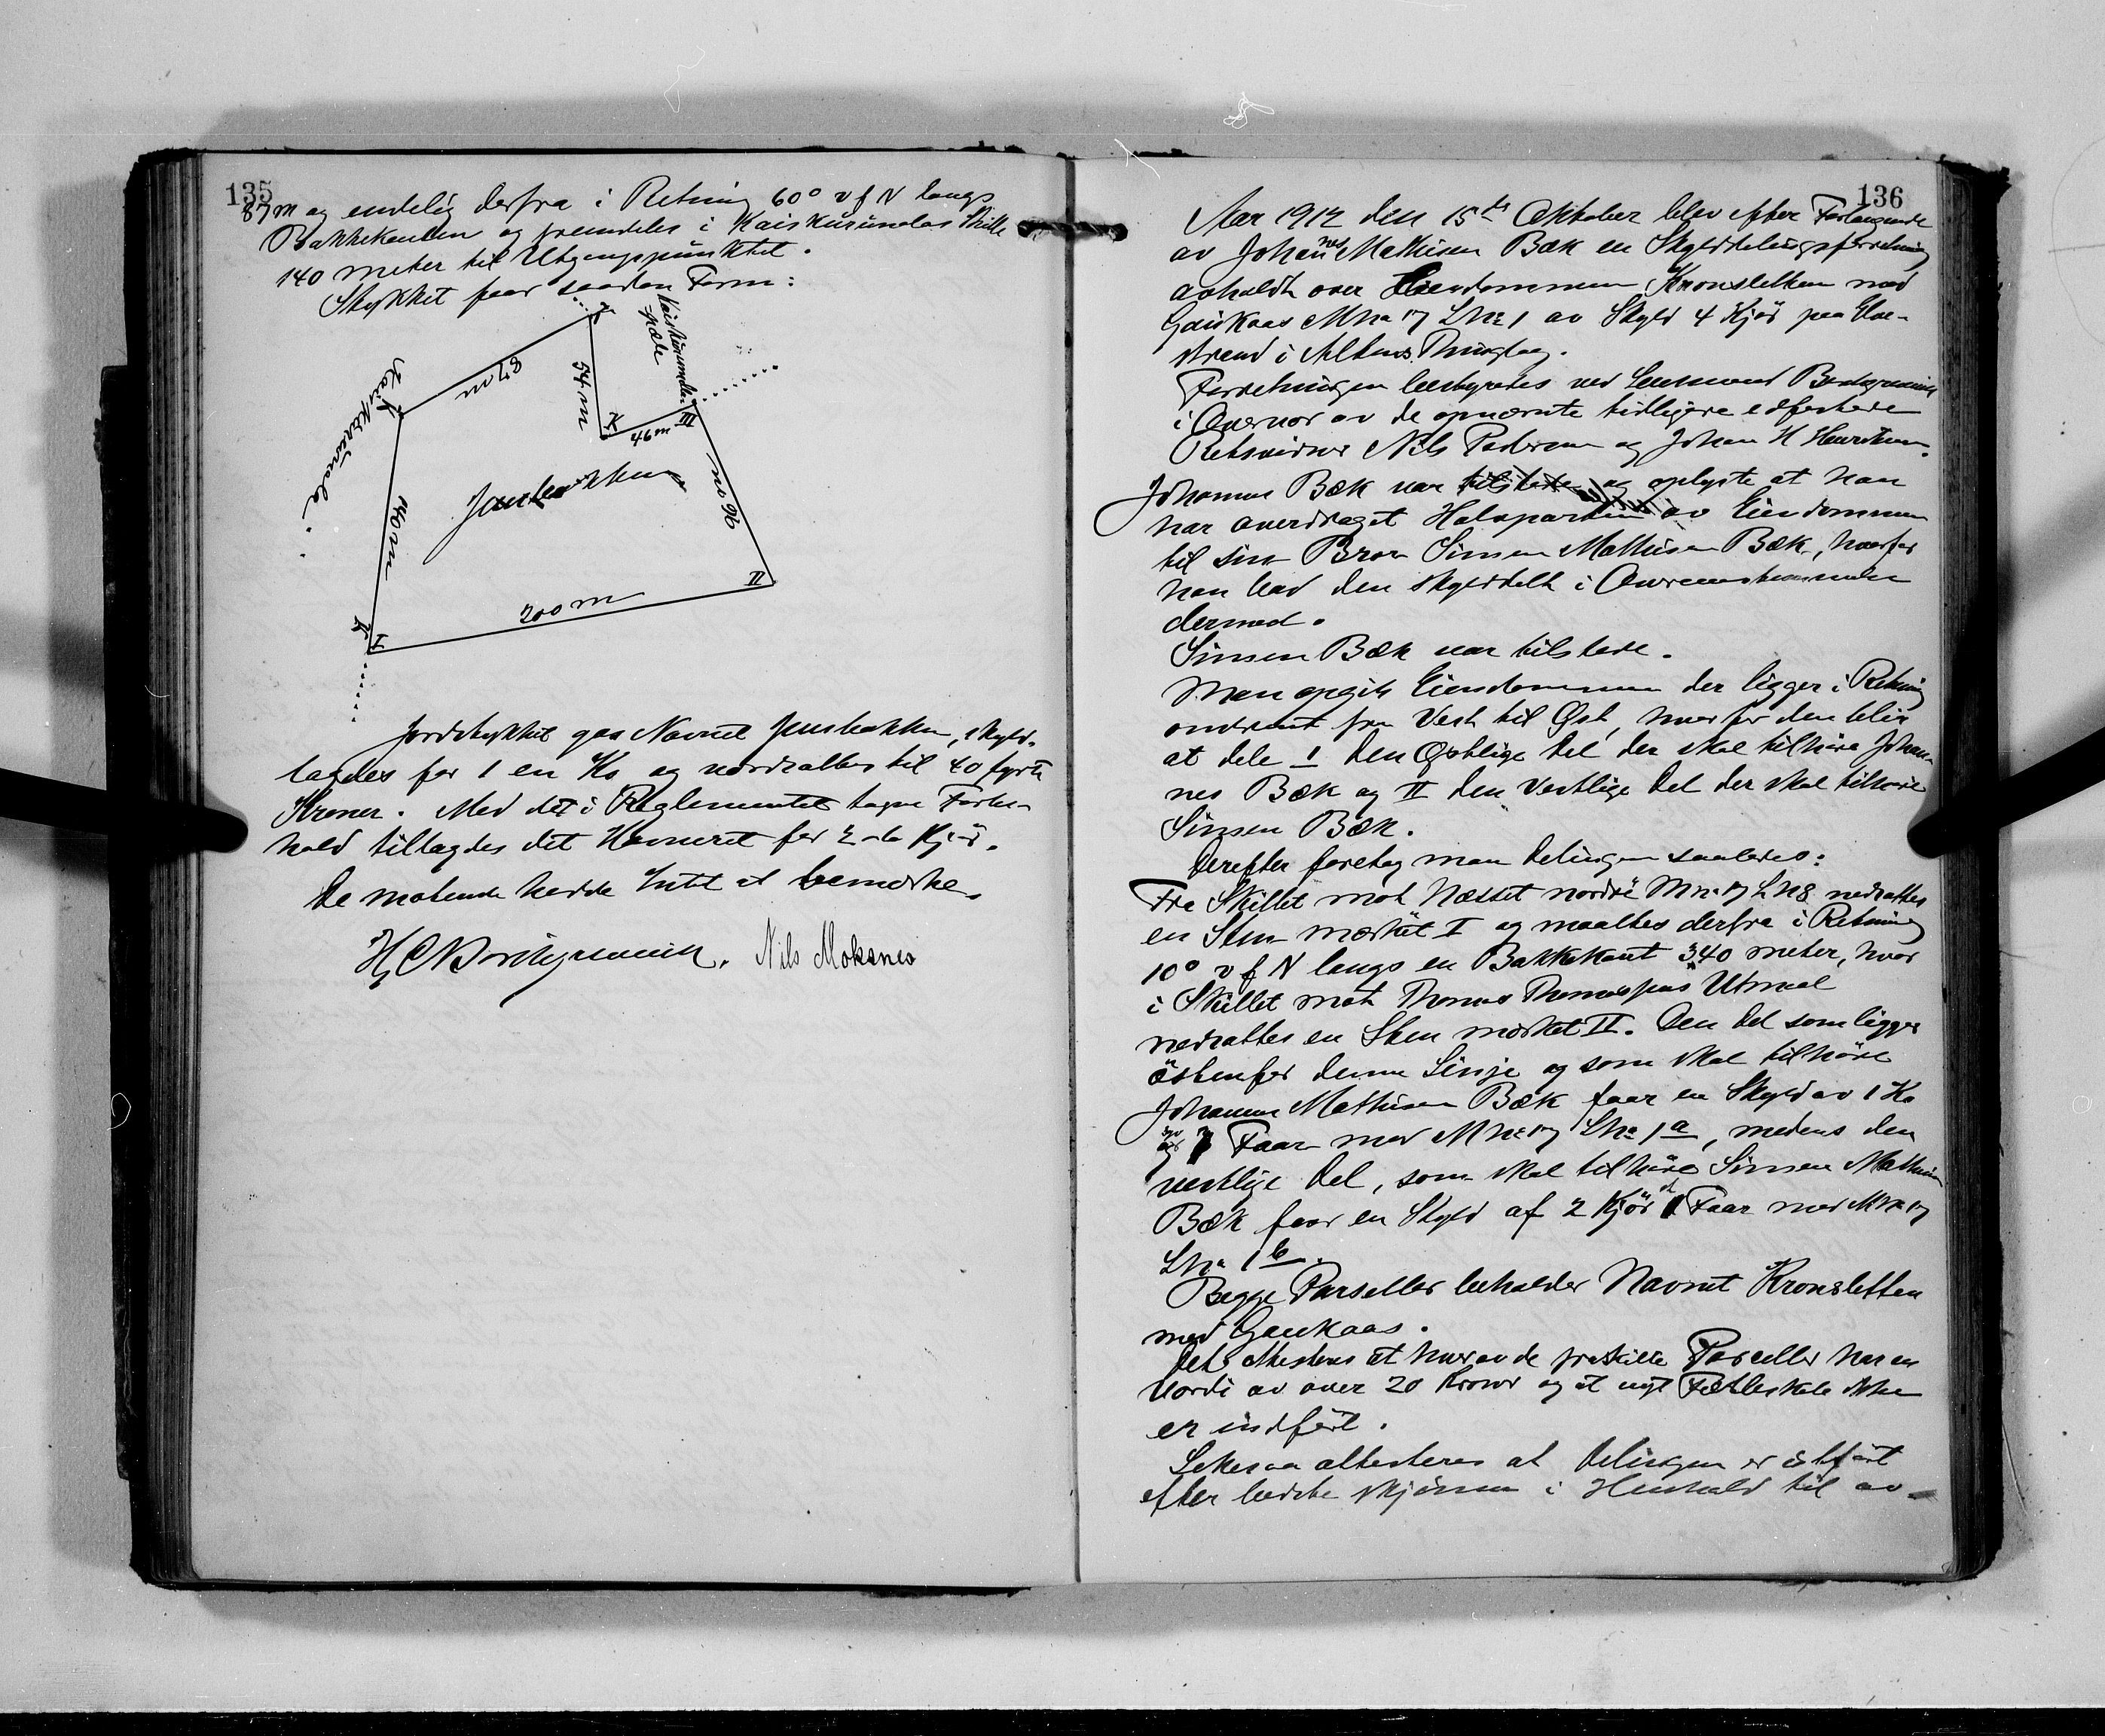 135
87 m og endelig derfra i Retning 60° v f N langs
Bakkekanten og fremdeles i Kaiskurumolas Skille
140 meter til Utgangspunktet.
Stykket faar saadan Form:
87 m
54 m
46 m
III
96 m
II
200 m
I
140 m
Jensbakken
Jordstykket gaa Navnet Jensbakken, skyld-
lagdes for 1 en Ko og værdsattes til 40 fyrti
Kroner. Med det i Reglementet tagne Forbe-
hold tillagdes det Havneret for 2 to Kjør.
De mötende hadde Intet at bemærke.
Nils Moksnes
136
Aar 1912 den 15de Oktober blev efter Forlangende
av Johannes Mathisen Bæk en Skylddelingsforretning
avholdt over Eiendommen Kronsletten med
Gaukaas M No 17 L No 1 av Skyld 4 Kjör paa
strand i Altens Thinglag.
Forretningen bestyredes ved Lensmand
i Overvær av de opnævnte tidligere edfestede
Retsvidner Nils Pedersen og Johan H Henriksen.
Johannes Bæk var tilstede og oplyste at han
har overdraget Halvparten av Eiendommen
til sin Bror Simen Mathisen Bæk, hvorfor
han bad den skylddelt i Overensstemmelse
dermed.
Simen Bæk var tilstede.
Man opgik Eiendommen der ligger i Retning
omtrent fra Vest til Øst, hvorfor den blir
at dele I den Østlige Del der skal tilhöre Johan-
nes Bæk og II den Vestlige Del der skal tilhöre
Simen Bæk.
Derefter foretog man Delingen saaledes:
Fra Skillet mot Næsset nordre M No 17 L N 8 nedsattes
en Sten mærket I og maaltes derfra i Retning
10° v f N langs en Bakkekant 340 meter, hvor
i Skillet mot Thomas Thomassens Utmaal
nedsattes en Sten mærket II. Den Del som ligger
östenfor denne Linje og som skal tilhöre
Johannes Mathisen Bæk faar en Skyld av 1 Ko
og 7 Faar med M No 17 L No 1 a, medens den
vestlige Del, som skal tilhöre Simen Mathisen
Bæk faar en Skyld af 2 Kjör og 1 Faar med M No 17
L No 1 b.
Begge Parseller beholder Navnet Kronsletten
med Gaukaas.
Det attesteres at hver av de fraskilte Parceller har en
Værdi av over 20 Kroner og at nyt Fælleskab ikke
er indfört.
Likesaa attesteres at Delingen er utfört
efter bedste Skjönn i Henhold til av-